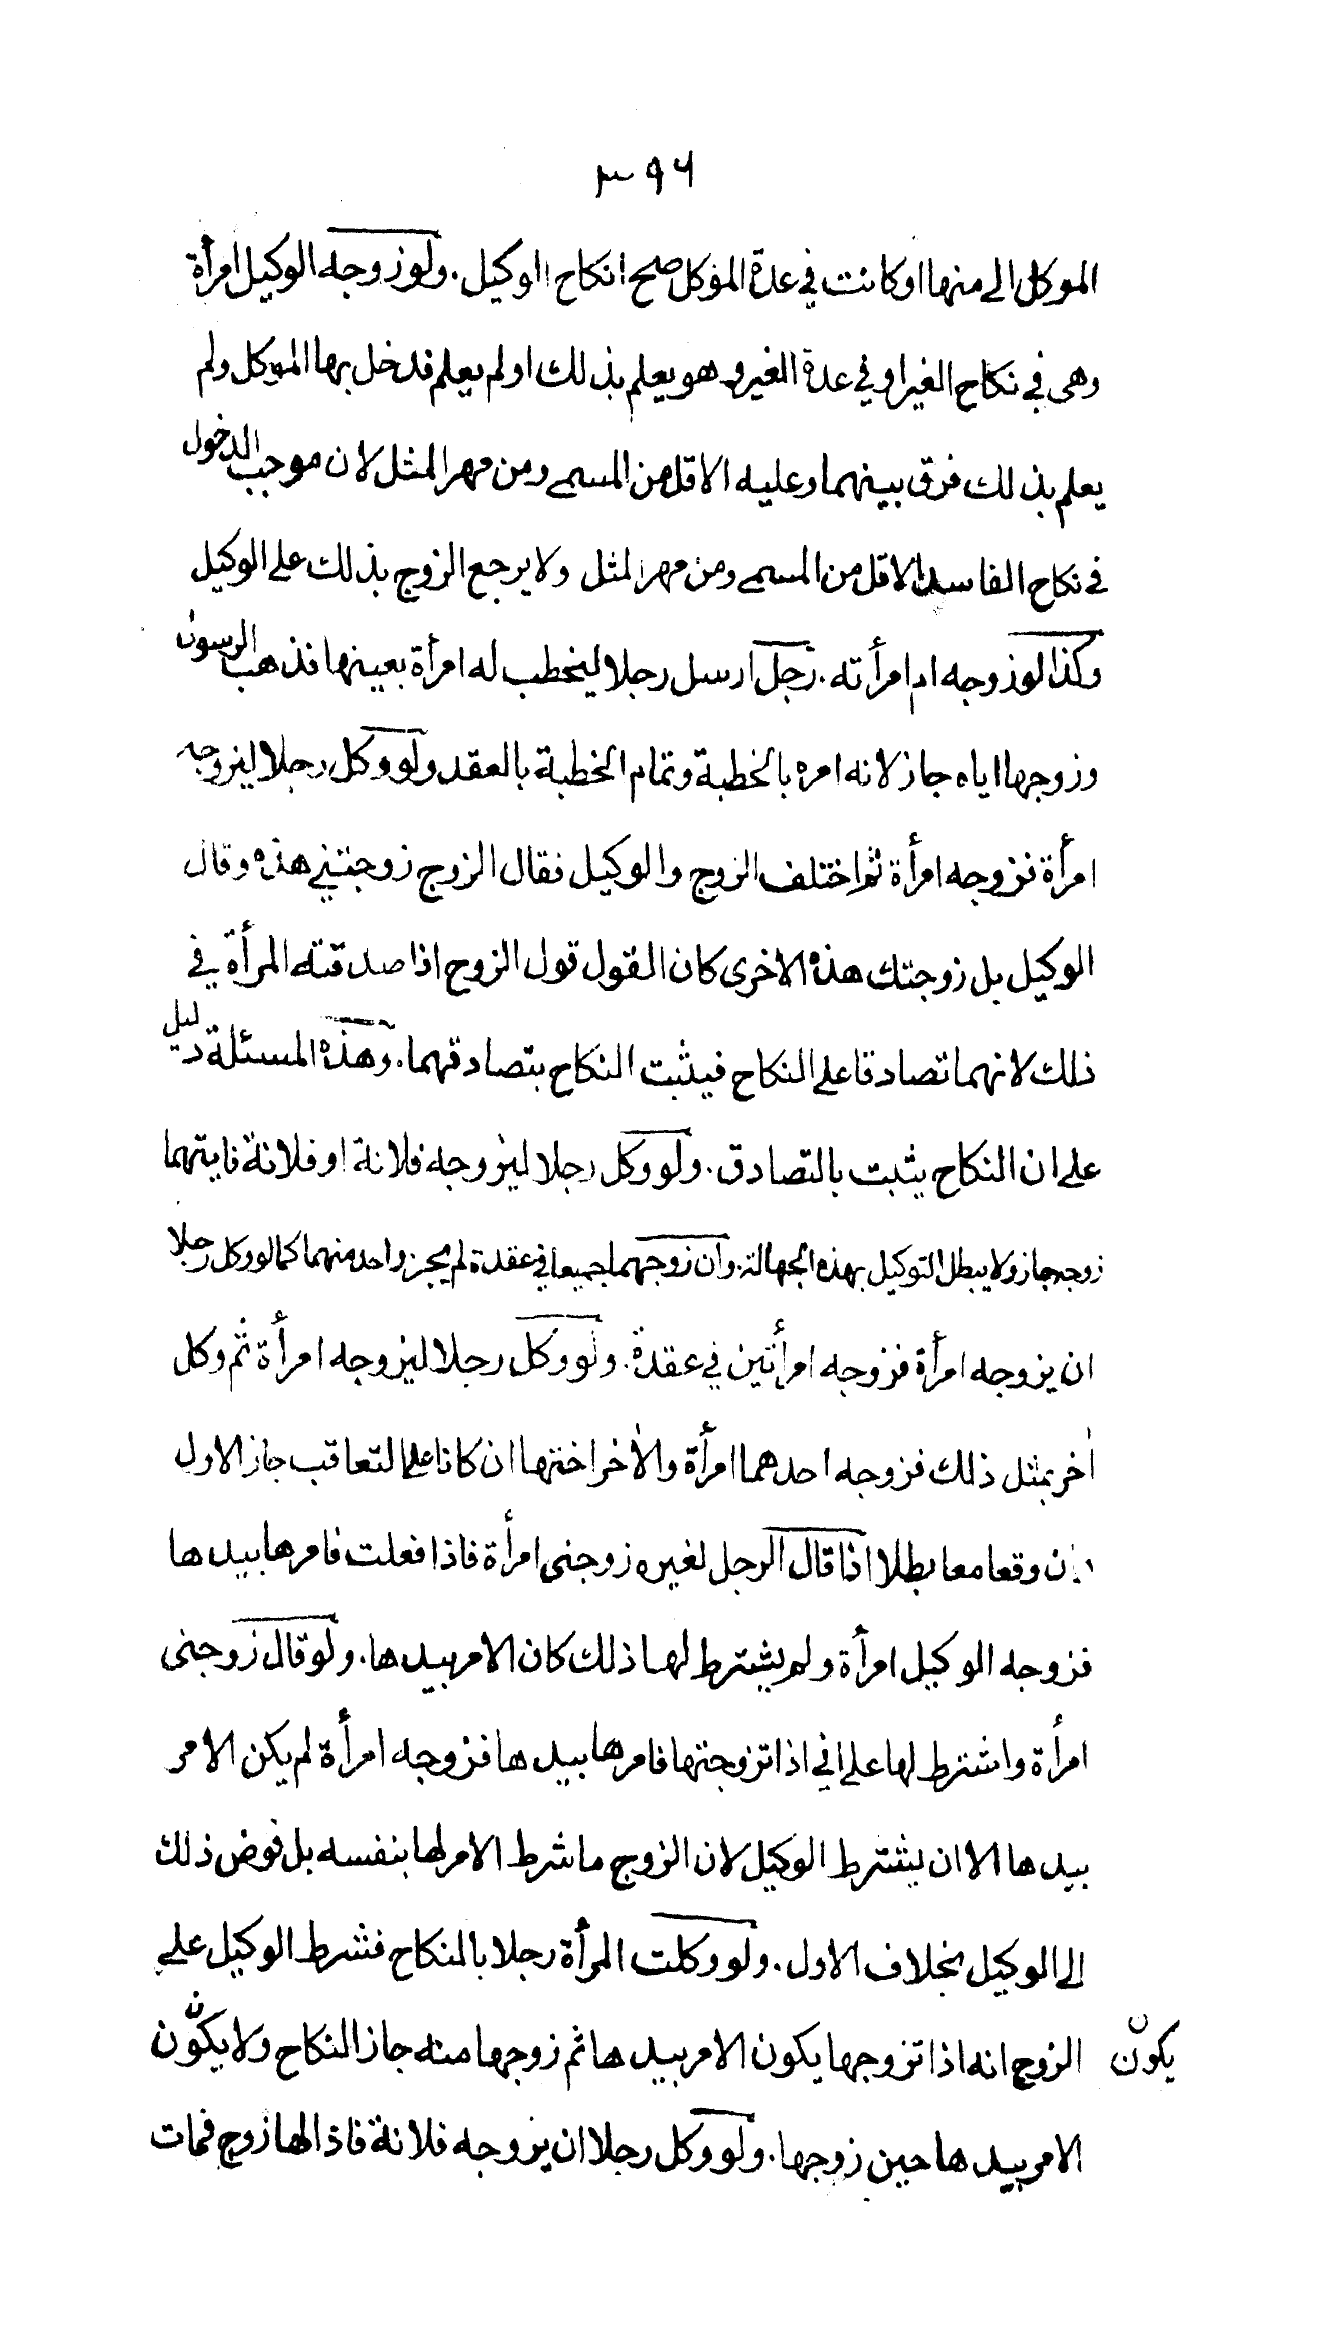 ٣٩٦
الموكل الى منها او كانت في عدة الموكل صح انكاح الوكيل. ولو زوجه الوكيل امرأة
وهى في نكاح الغير او في عدة الغير وهو يعلم بذلك او لم يعلم فدخل بها الموكل ولم
يعلم بذلك فرق بينهما وعليه الاقل من المسمى ومن مهر المثل لان موجب الدخول
في نكاح الفاسد الاقل من المسمى ومن مهر المثل ولا يرجع الزوج بذلك على الوكيل
وكذا لو زوجه ام امرأته. رجل ارسل رجلا ليخطب له امرأة بعينها فذهب الرسول
وزوجها اياه جاز لانه امره بالخطبة وتمام الخطبة بالعقد ولو وكل رجلا ليزوجه
امرأة فزوجه امرأة ثم اختلف الزوج والوكيل فقال الزوج زوجتني هذه وقال
الوكيل بل زوجتك هذه الاخرى كان القول قول الزوج اذا صدقته المرأة في
ذلك لانهما تصادقا على النكاح فيثبت النكاح بتصادقهما. وهذه المسئلة دليل
على ان النكاح يثبت بالتصادق. ولو وكل رجلا ليزوجه فلانة او فلانة فايتهما
زوجه جاز ولا يبطل التوكيل بهذه الجهالة. وان زوجهما جميعا في عقدة لم يجز واحد منهما كما لو وكل رجلا
ان يزوجه امرأة فزوجه امرأتين في عقدة. ولو وكل رجلا ليزوجه امرأة ثم وكل
أخر بمثل ذلك فزوجه احدهما امرأة والأخر اختها ان كانا على التعاقب جاز الاول
وان وقعا معا بطلا اذا قال الرجل لغيره زوجنى امرأة فاذا فعلت فامرها بيدها
فزوجه الوكيل امرأة ولم يشترط لها ذلك كان الامر بيدها. ولو قال زوجنى
امرأة واشترط لها على اني اذا تزوجتها فامرها بيدها فزوجه امرأة لم يكن الامر
بيدها الا ان يشترط الوكيل لان الزوج ما شرط الامر لها بنفسه بل فوض ذلك
الى الوكيل بخلاف الاول. ولو وكلت المرأة رجلا بالنكاح فشرط الوكيل على
الزوج انه اذا تزوجها يكون الامر بيدها ثم زوجها منه جاز النكاح ولا يكون
يكون
الامر بيدها حين زوجها. ولو وكل رجلا ان يزوجه فلانة فاذا لها زوج فمات